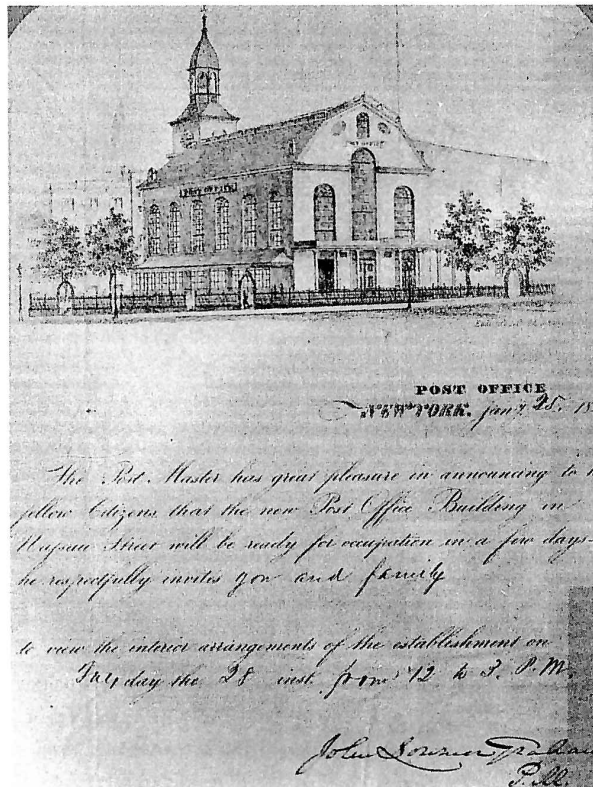 POST OFFICE
POST OFFICE
POST OFFICE
NEW YORK. Jany 25. 18
The Post Master has great pleasure in announcing to
fellow Citizens that the new Post Office Building in
Nassau Street will be ready for occupation in a few days-
he respectfully invites you and family
to view the interior arrangements of the establishment on
Friday the 28 inst. from 12 to 3. P.M.
John Lorimer Graham
P.M.